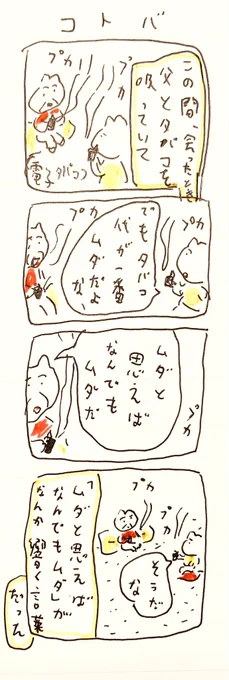 コトバ
この間、会ったとき
父とタバコを
吸っていて
プカ
プカ
プカ
電子タバコ
でもタバコ
代が一番
ムダだよ
な
プカ
プカ
ムダと
思えば
なんでも
ムダだ
プカ
プカ
プカ
そうだ
な
「ムダと思えば
なんでもムダ」が
なんか響く言葉
だった